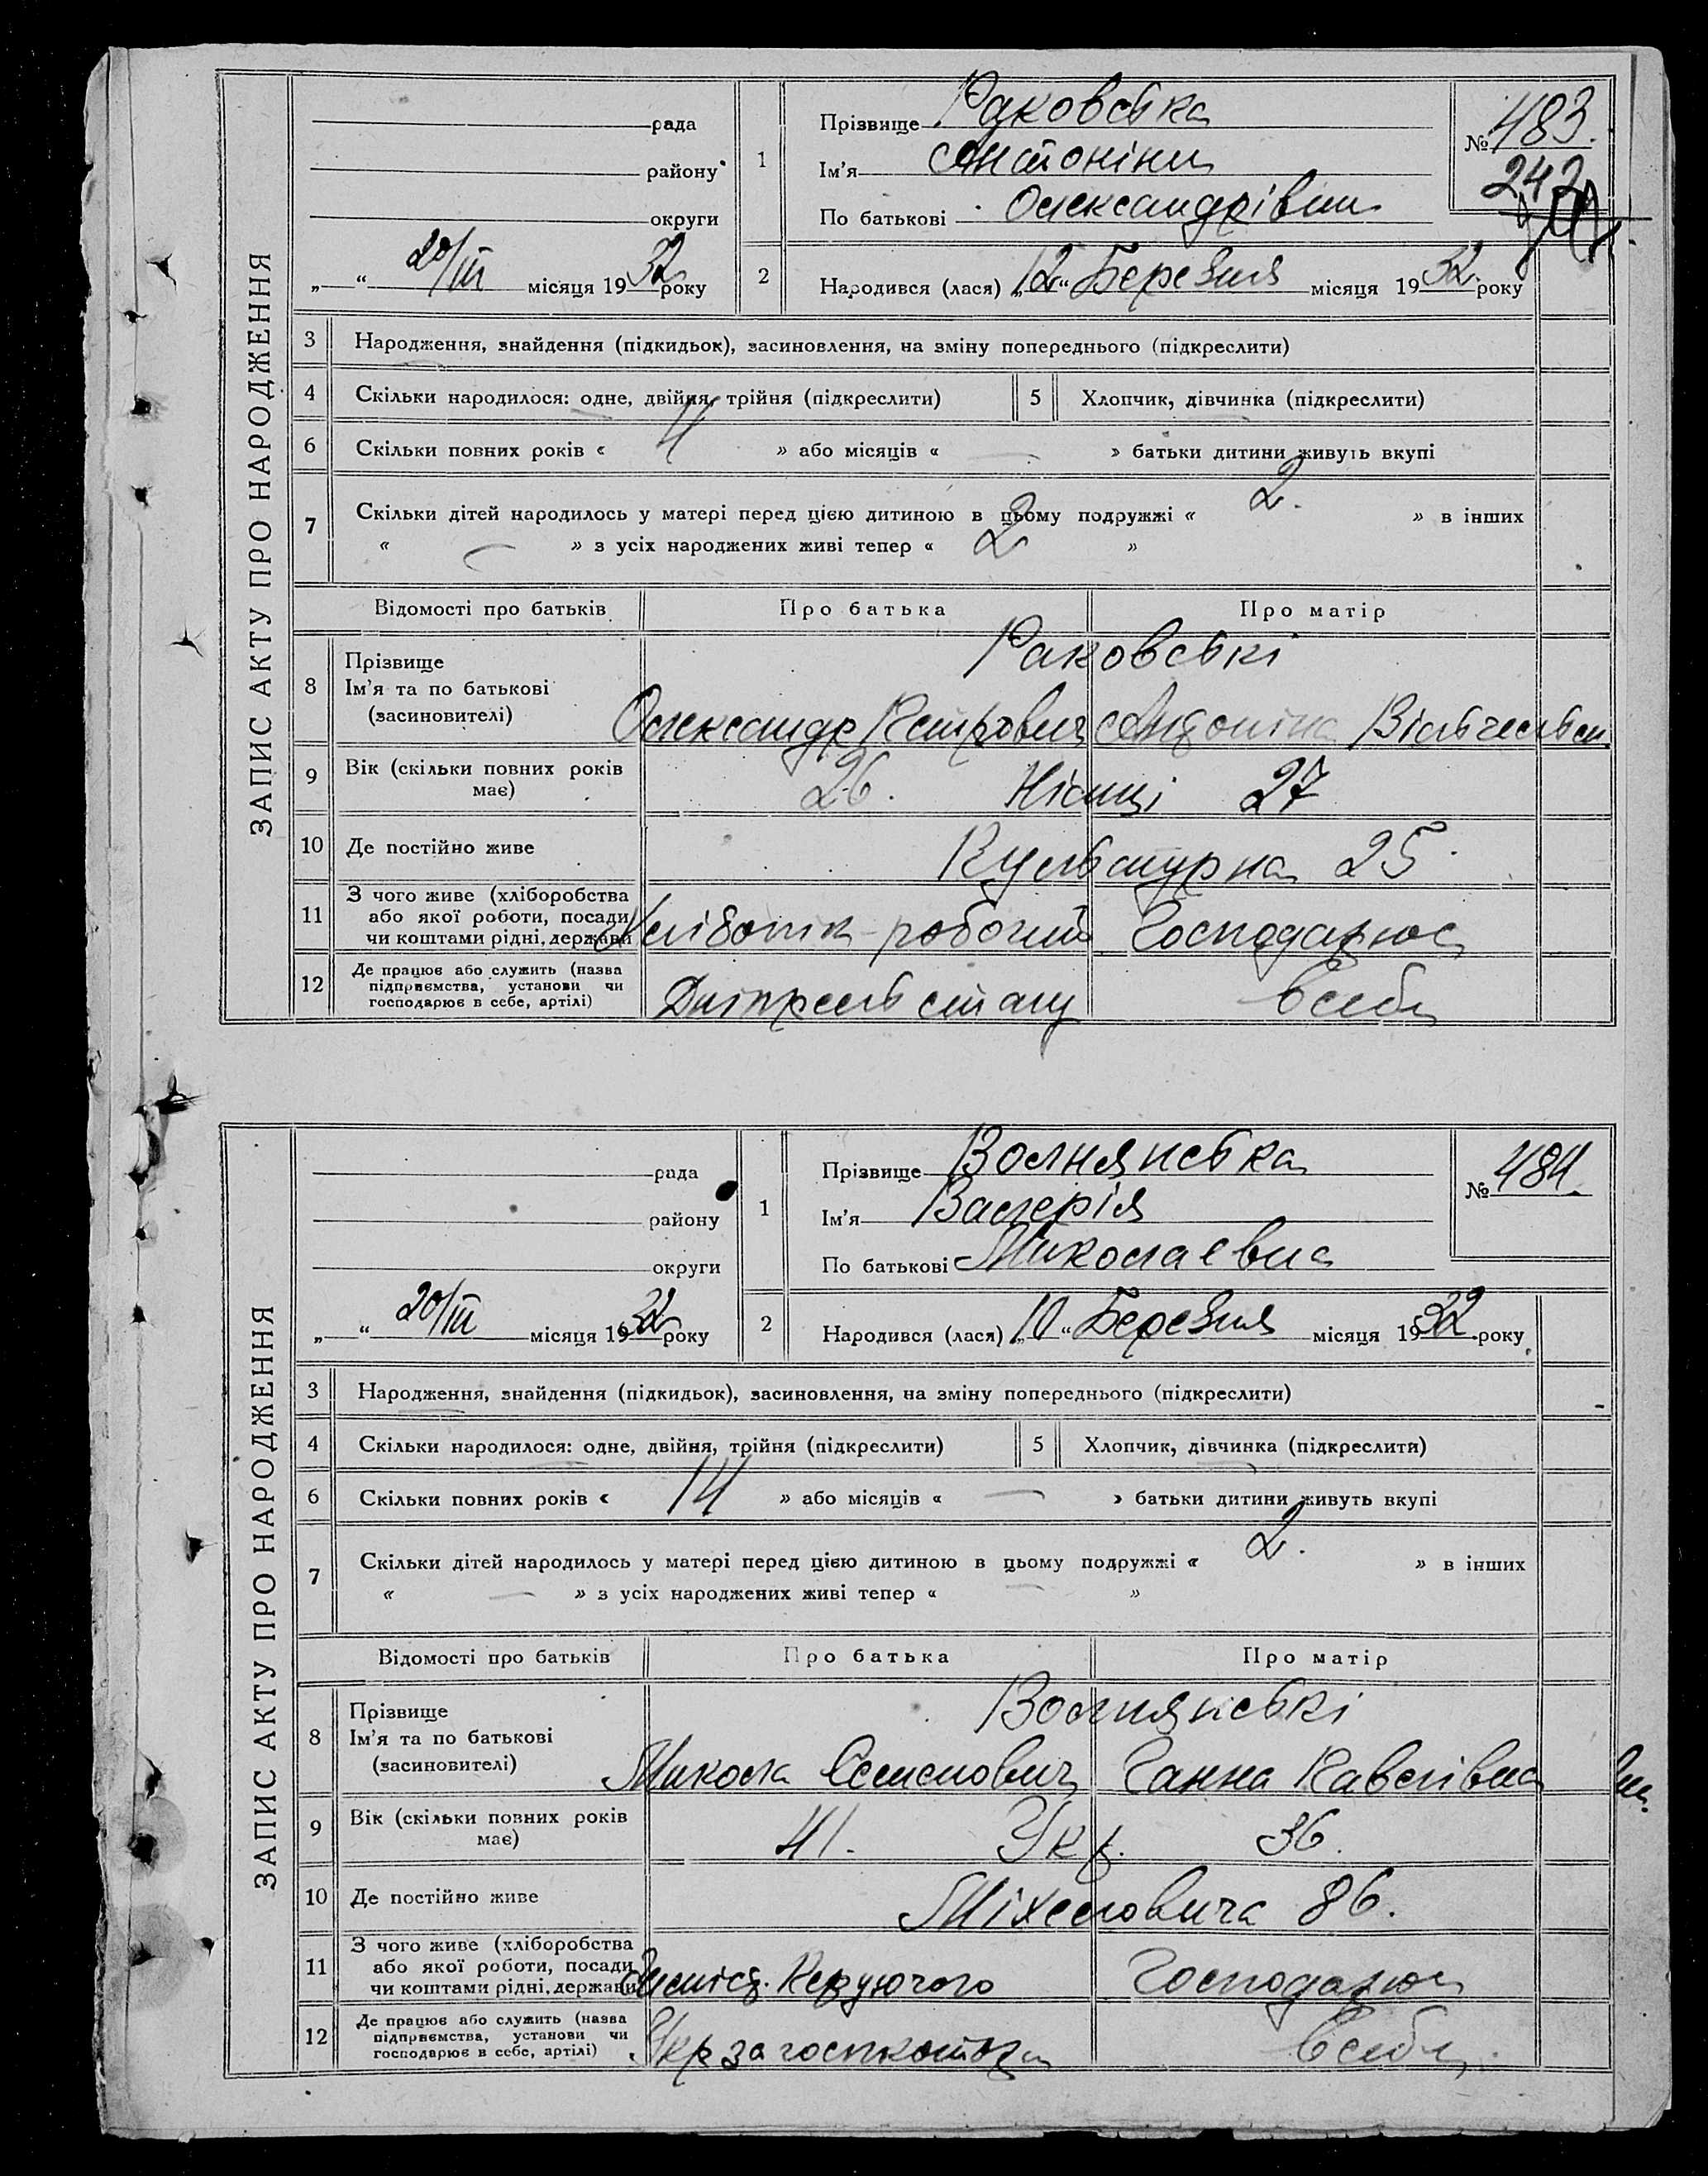 ЗАПИС АКТУ ПРО НАРОДЖЕННЯ
рада
району
округи
„ “ 20/III місяця 1932 року
1
Прізвище Раковська
Ім'я Антоніна
По батькові Олександрівна
№ 483.
242
2 Народився (лася) „12“ Березня місяця 1932 року
3 Народження, знайдення (підкидьок), засиновлення, на зміну попереднього (підкреслити)
4 Скільки народилося: одне, двійня, трійня (підкреслити) 5 Хлопчик, дівчинка (підкреслити)
6 Скільки повних років « 4 » або місяців « — » батьки дитини живуть вкупі
7 Скільки дітей народилось у матері перед цією дитиною в цьому подружжі « 2. » в інших
« — » з усіх народжених живі тепер « 2 »
Відомості про батьків Про батька Про матір
8 Прізвище Раковські
Ім'я та по батькові
(засиновителі) Олександр Петрович Антоніна
9 Вік (скільки повних років має) 26. Німці 27
10 Де постійно живе Культурна 25
11 З чого живе (хліборобства
або якої роботи, посади
чи коштами рідні, держави робочий Господарює
12 Де працює або служить (назва
підприємства, установи чи
господарює в себе, артілі) Дніпрельстану в себе
ЗАПИС АКТУ ПРО НАРОДЖЕННЯ
рада
району
округи
„ “ 20/III місяця 1932 року
1
Прізвище Волнянська
Ім'я Валерія
По батькові Миколаевна
№ 484.
2 Народився (лася) „10“ Березня місяця 1932 року
3 Народження, знайдення (підкидьок), засиновлення, на зміну попереднього (підкреслити)
4 Скільки народилося: одне, двійня, трійня (підкреслити) 5 Хлопчик, дівчинка (підкреслити)
6 Скільки повних років « 14 » або місяців « — » батьки дитини живуть вкупі
7 Скільки дітей народилось у матері перед цією дитиною в цьому подружжі « 2. » в інших
« — » з усіх народжених живі тепер « — »
Відомості про батьків Про батька Про матір
8 Прізвище Волнянські
Ім'я та по батькові
(засиновителі) Микола Семенович Ганна Павлівна
9 Вік (скільки повних років має) 41. Укр. 36.
10 Де постійно живе Міхеловича 86.
11 З чого живе (хліборобства
або якої роботи, посади
чи коштами рідні, держави Керуючого Господарює
12 Де працює або служить (назва
підприємства, установи чи
господарює в себе, артілі) в себе